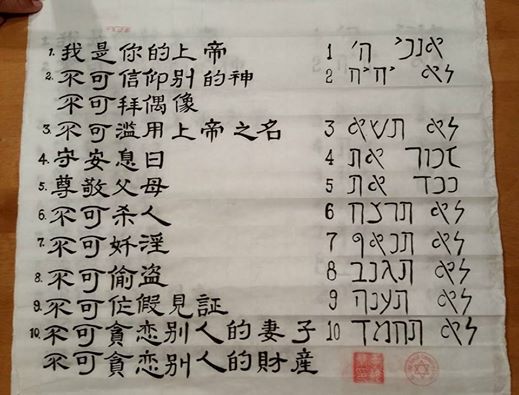 1. 我是你的上帝
2. 不可信仰别的神
不可拜偶像
3. 不可滥用上帝之名
4. 守安息日
5. 尊敬父母
6. 不可杀人
7. 不可奸淫
8. 不可偷盗
9. 不可作假見証
10. 不可貪恋别人的妻子
不可貪恋别人的財産
1 אנכי ה'
2 לא יהיה
3 לא תשא
4 זכור את
5 כבד את
6 לא תרצח
7 לא תנאף
8 לא תגנב
9 לא תענה
10 לא תחמד